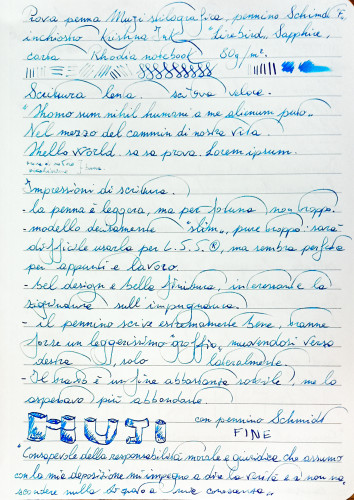 Prova penna Muji stilografica, pennino Schmidt F,
inchiostro Krishna Ink "Bluebird, Sapphire,
carta Rhodia notebook 80g/m².
Scrittura lenta. scrittura veloce.
"Homo sum nihil humani a me alienum puto„
Nel mezzo del cammin di nostra vita.
Hello World. sa sa prova. Lorem ipsum.
Impressioni di scrittura.
- la penna è leggera, ma per fortuna non troppo.
- modello decisamente "slim„, pure troppo: sarà
difficile usarla per L.S.S.®, ma sembra perfetta
per appunti e lavoro.
- bel design e belle finiture, interessante la
zigrinatura sull'impugnatura.
- il pennino scrive estremamente bene, tranne
forse un leggerissimo graffio, muovendosi verso
destra, solo lateralmente.
- Il tratto è un fine abbastanza sottile, me lo
aspettavo più abbondante.
MUJI con pennino Schmidt
FINE
"Consapevole della responsabilità morale e giuridica che assumo
con la mia deposizione mi impegno a dire la verità e a non na-
scondere nulla di quanto a mia conoscenza„